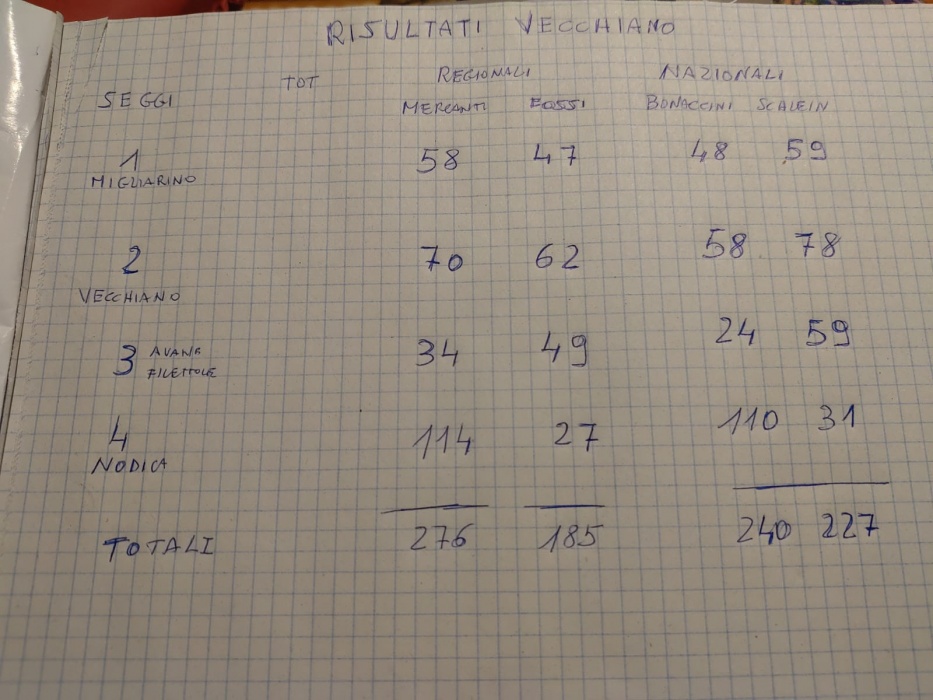 RISULTATI VECCHIANO
SEGGI TOT REGIONALI NAZIONALI
MERCANTI FOSSI BONACCINI SCHLEIN
1 58 47 48 59
MIGLIARINO
2 70 62 58 78
VECCHIANO
3 AVANE 34 49 24 59
FILETTOLE
4 114 27 110 31
NODICA
TOTALI 276 185 240 227